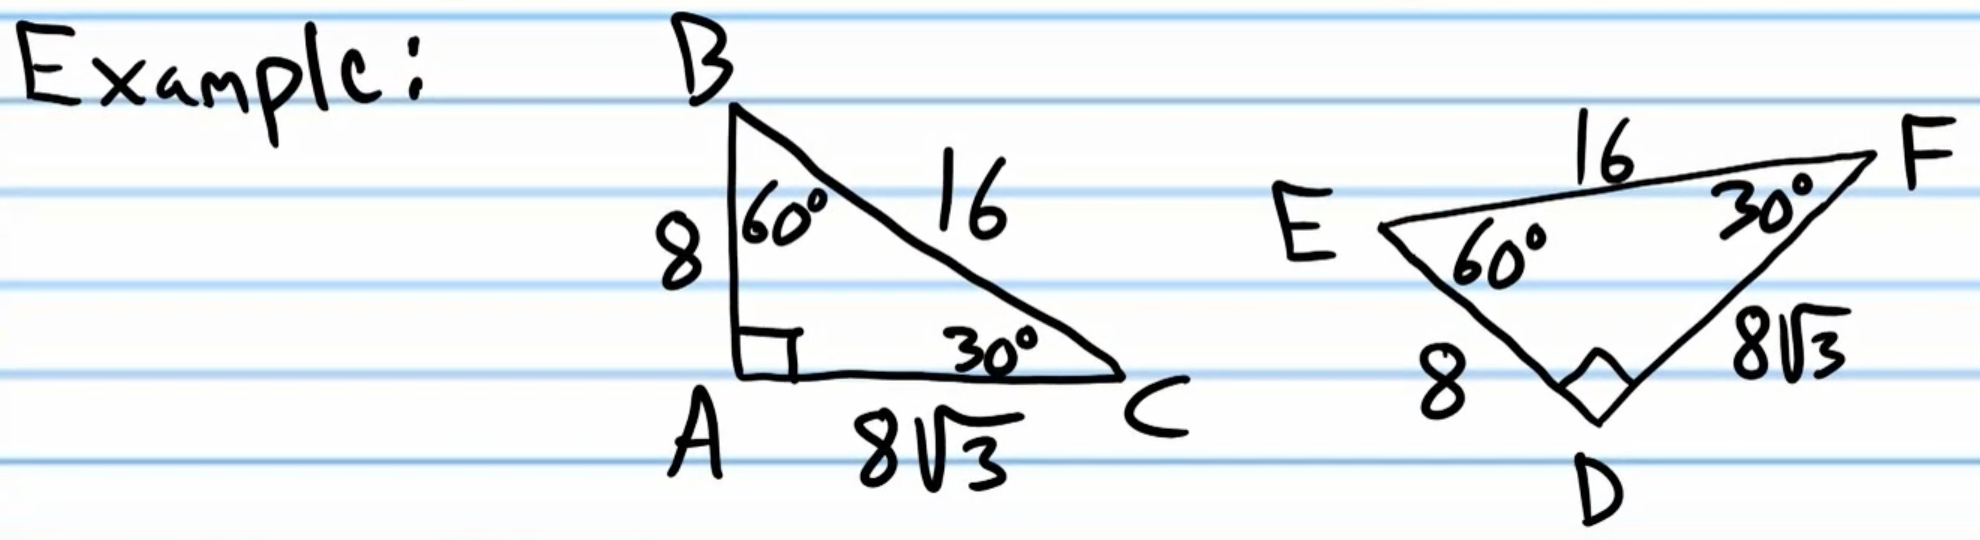 Example:
B
60°
16
8
30°
A
8√3
C
16
F
E
60°
30°
8
8√3
D